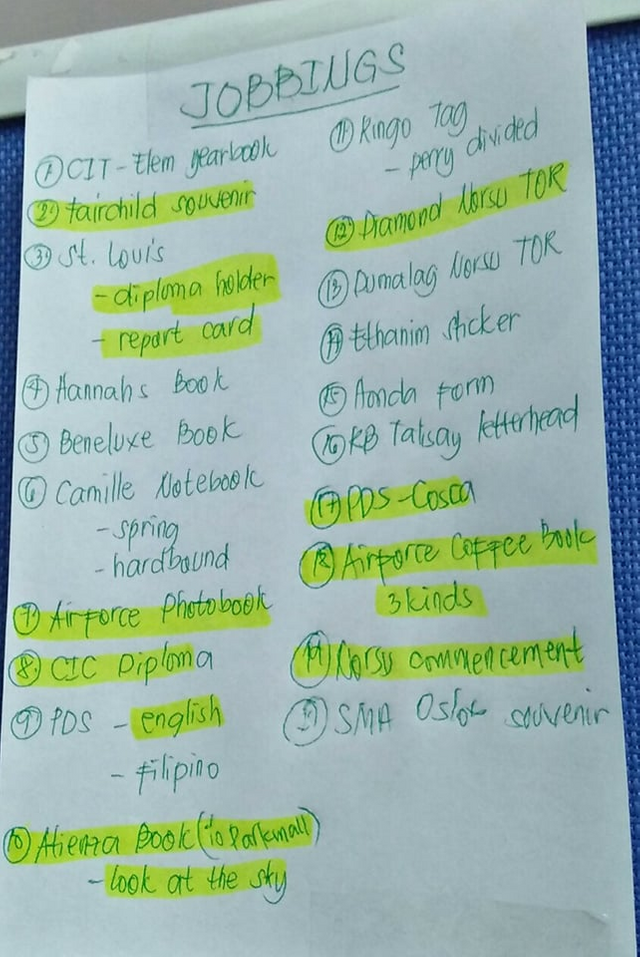 JOBBINGS
① CIT - Elem yearbook
② fairchild souvenir
③ St. Louis
- diploma holder
- report card
④ Hannahs Book
⑤ Beneluxe Book
⑥ Camille Notebook
- spring
- hardbound
⑦ Airforce Photobook
⑧ CIC Diploma
⑨ PDS - english
- filipino
⑩ Atienza Book (to Parkmall)
- look at the sky
⑪ Ringo Tag
- perry divided
⑫ Diamond Norsu TOR
⑬ Dumalag Norsu TOR
⑭ Ethanim sticker
⑮ Honda Form
⑯ KB Talisay letterhead
⑰ PDS - Cosca
⑱ Airforce Coffee Book
3 kinds
⑲ Norsu commencement
SMA Oslob souvenir